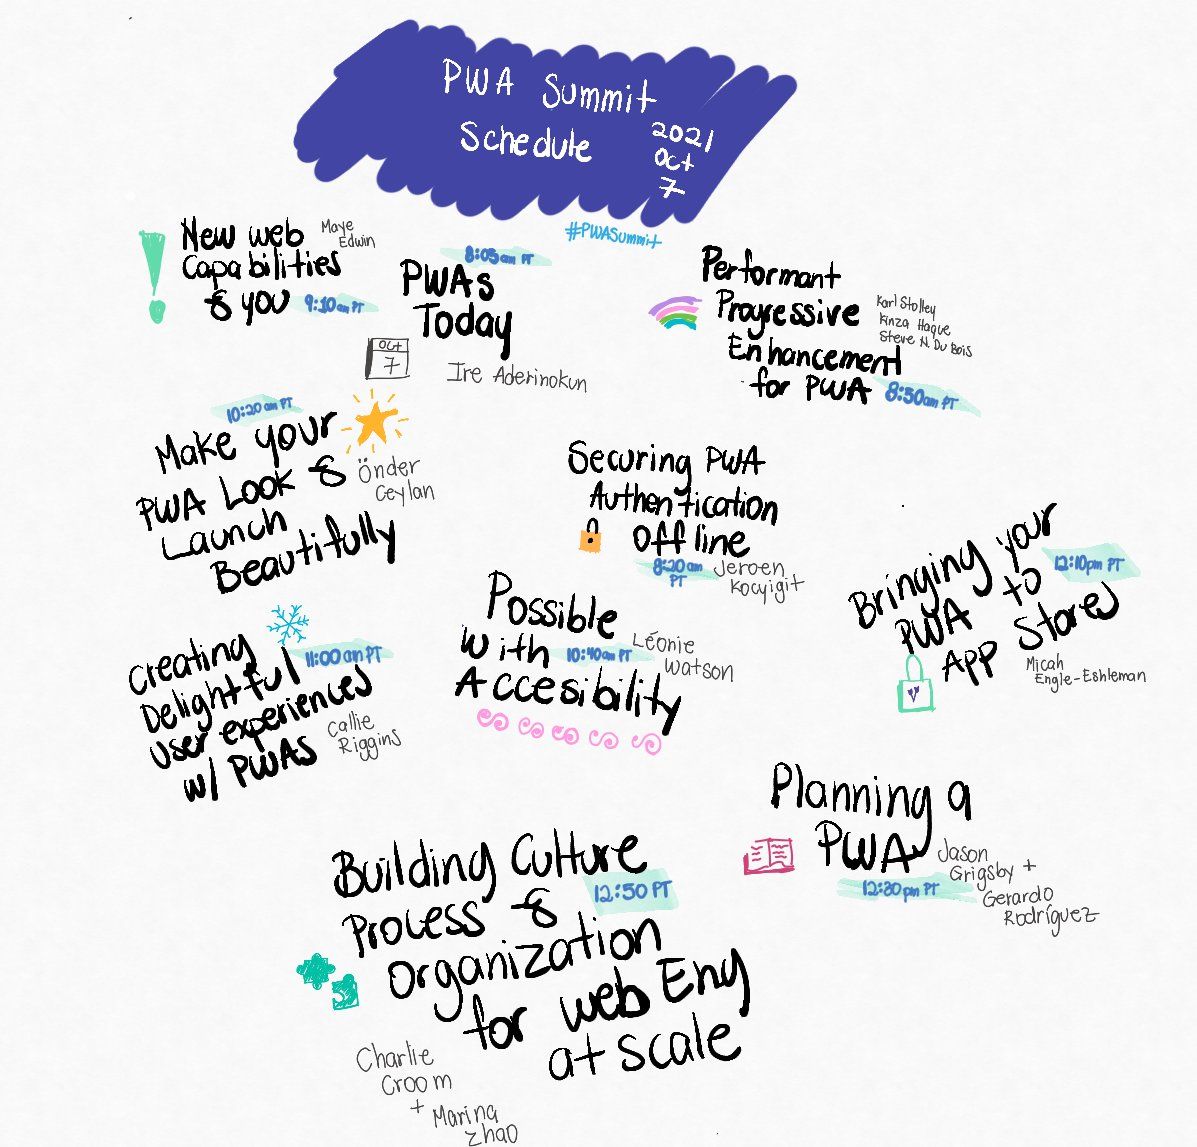 PWA Summit
Schedule
2021
Oct
7
#PWASummit
New web
Capabilities
& you
Maye
Edwin
9:10am PT
8:05am PT
PWAs
Today
OCT
7
Ire Aderinokun
Performant
Progressive
Enhancement
for PWA
Karl Stolley
Kinza Haque
Steve N. Du Bois
8:50am PT
10:20am PT
Make your
PWA Look &
Launch
Beautifully
Önder
Ceylan
Securing PWA
Authentication
Offline
8:20am
PT
Jeroen
Kocyigit
Bringing your
PWA to
App Stores
12:10pm PT
Micah
Engle-Eshleman
Creating
Delightful
User experiences
w/ PWAs
11:00am PT
Callie
Riggins
Possible
With
Accesibility
10:40am PT
Léonie
Watson
Planning a
PWA
12:30pm PT
Jason
Grigsby +
Gerardo
Rodríguez
Building Culture
Process &
Organization
for web Eng
at scale
12:50 PT
Charlie
Croom
+
Marina
Zhao